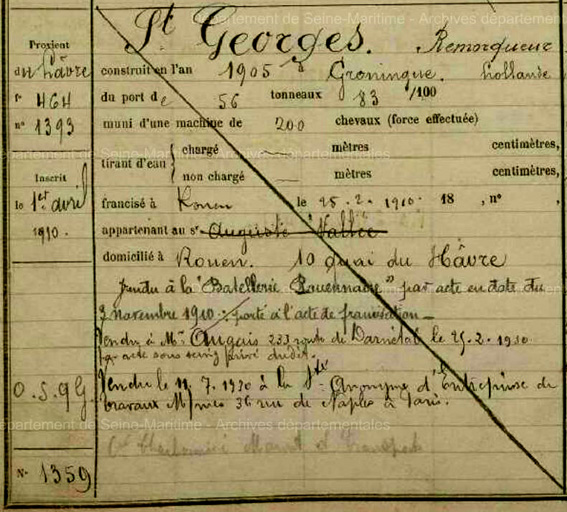 Département de Seine-Maritime - Archives départementales
St Georges. Remorqueur
Provient
du hâvre
fo 464
no 1393
Inscrit
le 1er avril
1910.
construit en l'an 1905 à Groningue. hollande
du port de 56 tonneaux 83 /100
muni d'une machine de 200 chevaux (force effectuée)
tirant d'eau
chargé — mètres centimètres,
non chargé — mètres centimètres,
francisé à Rouen le 25. 2. 1910. 18 , no ,
appartenant au sr Auguste Vallée
domicilié à Rouen. 10 quai du Hâvre
Vendu à la "Batellerie Rouennaise" par acte en date du
3 novembre 1910. porté à l'acte de francisation —
Vendu à Mr Auguis 233 route de Darnétal le 25. 2. 1930
par acte sous seing privé dudit.
O.S.99.
Vendu le 11. 7. 1930 à la Sté Anonyme d'Entreprise de
travaux 36 rue de Naples à Paris.
No 1359